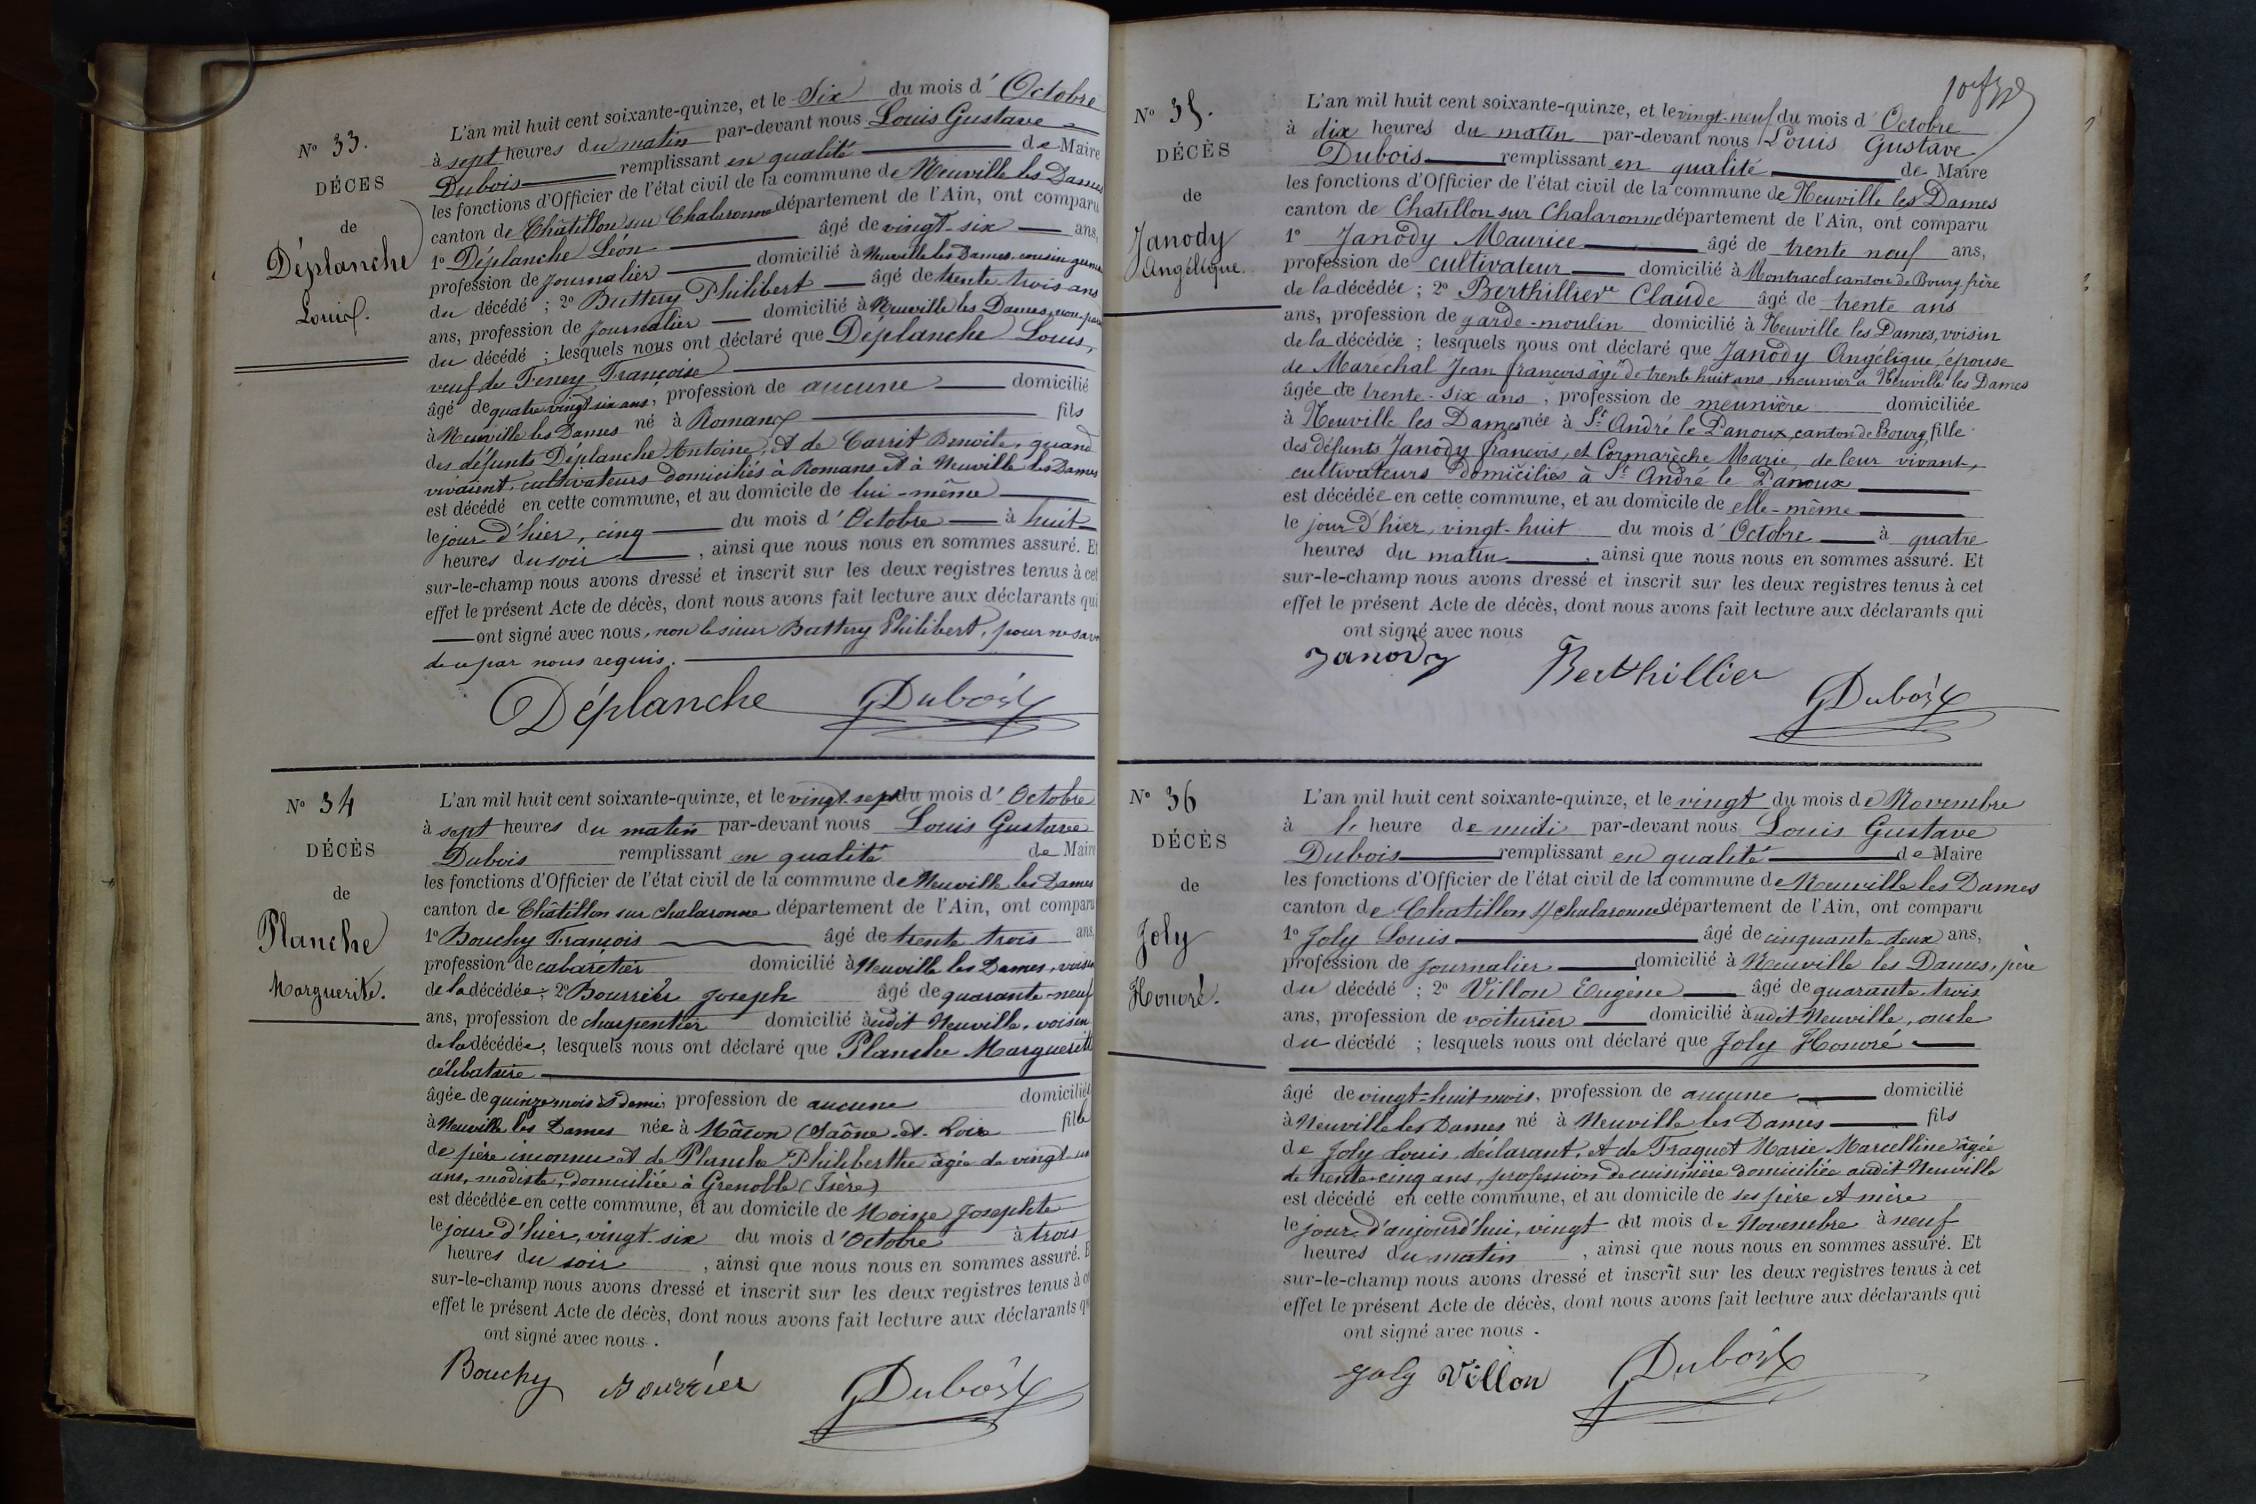 N° 33.
DÉCES
de
Déplanche
Louis.
L'an mil huit cent soixante-quinze, et le Six du mois d'Octobre
à sept heures du matin par-devant nous Louis Gustave
Dubois remplissant en qualité de Maire
les fonctions d'Officier de l'état civil de la commune de Neuville les Dames
canton de Châtillon sur Chalaronne département de l'Ain, ont comparu
1° Déplanche Léon âgé de vingt-six ans,
profession de journalier domicilié à Neuville les Dames, cousin germain
du décédé ; 2° Buttery Philibert âgé de trente trois ans
ans, profession de journalier domicilié à Neuville les Dames, non-parent
du décédé ; lesquels nous ont déclaré que Déplanche Louis,
veuf de Feney Françoise
âgé de quatre vingt six ans, profession de aucune domicilié
à Neuville les Dames né à Romans fils
des défunts Déplanche Antoine, et de Carrit Benoite, quand
vivaient, cultivateurs domiciliés à Romans et à Neuville les Dames
est décédé en cette commune, et au domicile de lui-même
le jour d'hier, cinq du mois d'Octobre à huit
heures du soir , ainsi que nous nous en sommes assuré. Et
sur-le-champ nous avons dressé et inscrit sur les deux registres tenus à cet
effet le présent Acte de décès, dont nous avons fait lecture aux déclarants qui
ont signé avec nous, non le sieur Buttery Philibert, pour ne savoir
de ce par nous requis.
Déplanche GDubois
N° 34
DÉCÈS
de
Planche
Marguerite.
L'an mil huit cent soixante-quinze, et le vingt-sept du mois d'Octobre
à sept heures du matin par-devant nous Louis Gustave
Dubois remplissant en qualité de Maire
les fonctions d'Officier de l'état civil de la commune de Neuville les Dames
canton de Châtillon sur Chalaronne département de l'Ain, ont comparu
1° Bouchy François âgé de trente trois ans,
profession de cabaretier domicilié à Neuville les Dames, voisin
de la décédée; 2° Bourrier Joseph âgé de quarante-neuf
ans, profession de charpentier domicilié à udit Neuville, voisin
de la décédée, lesquels nous ont déclaré que Planche Marguerite
célibataire
âgée de quinze mois et demi, profession de aucune domiciliée
à Neuville les Dames née à Mâcon (Saône-et-Loire fille
de père inconnu et de Planche Philiberthe âgée de vingt-un
ans, modiste, domiciliée à Grenoble (Isère)
est décédée en cette commune, et au domicile de Moine Josephte
le jour d'hier, vingt-six du mois d'Octobre à trois
heures du soir , ainsi que nous nous en sommes assuré. E
sur-le-champ nous avons dressé et inscrit sur les deux registres tenus à ce
effet le présent Acte de décès, dont nous avons fait lecture aux déclarants qu
ont signé avec nous.
Bouchy Bourrier GDubois
N° 35.
DÉCÈS
de
Janody
Angélique.
L'an mil huit cent soixante-quinze, et le vingt-neuf du mois d'Octobre
à dix heures du matin par-devant nous Louis Gustave
Dubois remplissant en qualité de Maire
les fonctions d'Officier de l'état civil de la commune de Neuville les Dames
canton de Chatillon sur Chalaronne département de l'Ain, ont comparu
1° Janody Maurice âgé de trente neuf ans,
profession de cultivateur domicilié à Montracol canton de Bourg frère
de la décédée ; 2° Berthillier Claude âgé de trente ans
ans, profession de garde-moulin domicilié à Neuville les Dames, voisin
de la décédée ; lesquels nous ont déclaré que Janody Angélique, épouse
de Maréchal Jean françois âgé de trente huit ans, meunier à Neuville les Dames
âgée de trente-six ans, profession de meunière domiciliée
à Neuville les Dames née à St André le Panoux, canton de Bourg fille
des défunts Janody françois, et Cormarèche Marie, de leur vivant,
cultivateurs domiciliés à St André le Panoux
est décédée en cette commune, et au domicile de elle-même
le jour d'hier, vingt-huit du mois d'Octobre à quatre
heures du matin , ainsi que nous nous en sommes assuré. Et
sur-le-champ nous avons dressé et inscrit sur les deux registres tenus à cet
effet le présent Acte de décès, dont nous avons fait lecture aux déclarants qui
ont signé avec nous
Janody Berthillier GDubois
N° 36
DÉCÈS
de
Joly
Honoré.
L'an mil huit cent soixante-quinze, et le vingt du mois de Novembre
à l' heure de midi par-devant nous Louis Gustave
Dubois remplissant en qualité de Maire
les fonctions d'Officier de l'état civil de la commune de Neuville les Dames
canton de Chatillon s/ chalaronne département de l'Ain, ont comparu
1° Joly Louis âgé de cinquante-deux ans,
profession de journalier domicilié à Neuville les Dames, père
du décédé ; 2° Villon Eugène âgé de quarante-trois
ans, profession de voiturier domicilié à udit Neuville, oncle
du décédé ; lesquels nous ont déclaré que Joly Honoré
âgé de vingt-huit mois, profession de aucune domicilié
à Neuville les Dames né à Neuville les Dames fils
de Joly Louis, déclarant, et de Traquet Marie Marcelline âgée
de trente-cinq ans, profession de cuisinière domiciliée audit Neuville
est décédé en cette commune, et au domicile de ses père et mère
le jour d'aujourd'hui, vingt du mois de Novembre à neuf
heures du matin , ainsi que nous nous en sommes assuré. Et
sur-le-champ nous avons dressé et inscrit sur les deux registres tenus à cet
effet le présent Acte de décès, dont nous avons fait lecture aux déclarants qui
ont signé avec nous.
Joly Villon GDubois